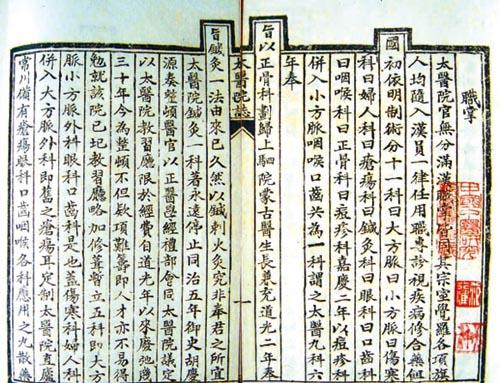 職掌
太醫院官無分滿漢職掌皆同其宗室覺羅各項旗
人均隨入漢員一律任用職專診視疾病修合藥餌
國初依明制術分十一科曰大方脈曰小方脈曰傷寒
科曰婦人科曰瘡瘍科曰鍼灸科曰眼科曰口齒科
曰咽喉科曰正骨科曰痘疹科嘉慶二年以痘疹科
併入小方脈咽喉口齒共為一科謂之太醫九科六
年奉
旨以正骨科劃歸上駟院蒙古醫生長兼充道光二年奉
太醫院志
一
旨鍼灸一法由來已久然以鍼刺火灸究非奉君之所宜
太醫院鍼灸一科著永遠停止同治五年御史胡慶
源奏整頓醫官以正醫學經禮部會同太醫院議定
以太醫院教習廳限於經費自道光年以來廢弛幾
三十年今為整頓不但欵項難籌即人才亦不易得
勉就該院已圮教習廳略加修葺暫立五科即大方
脈小方脈外科眼科口齒科是也蓋傷寒科婦人科
併入大方脈外科即舊之瘡瘍耳定制太醫院直廬
常川備有瘡瘍眼科口齒咽喉各科應用之丸散藥